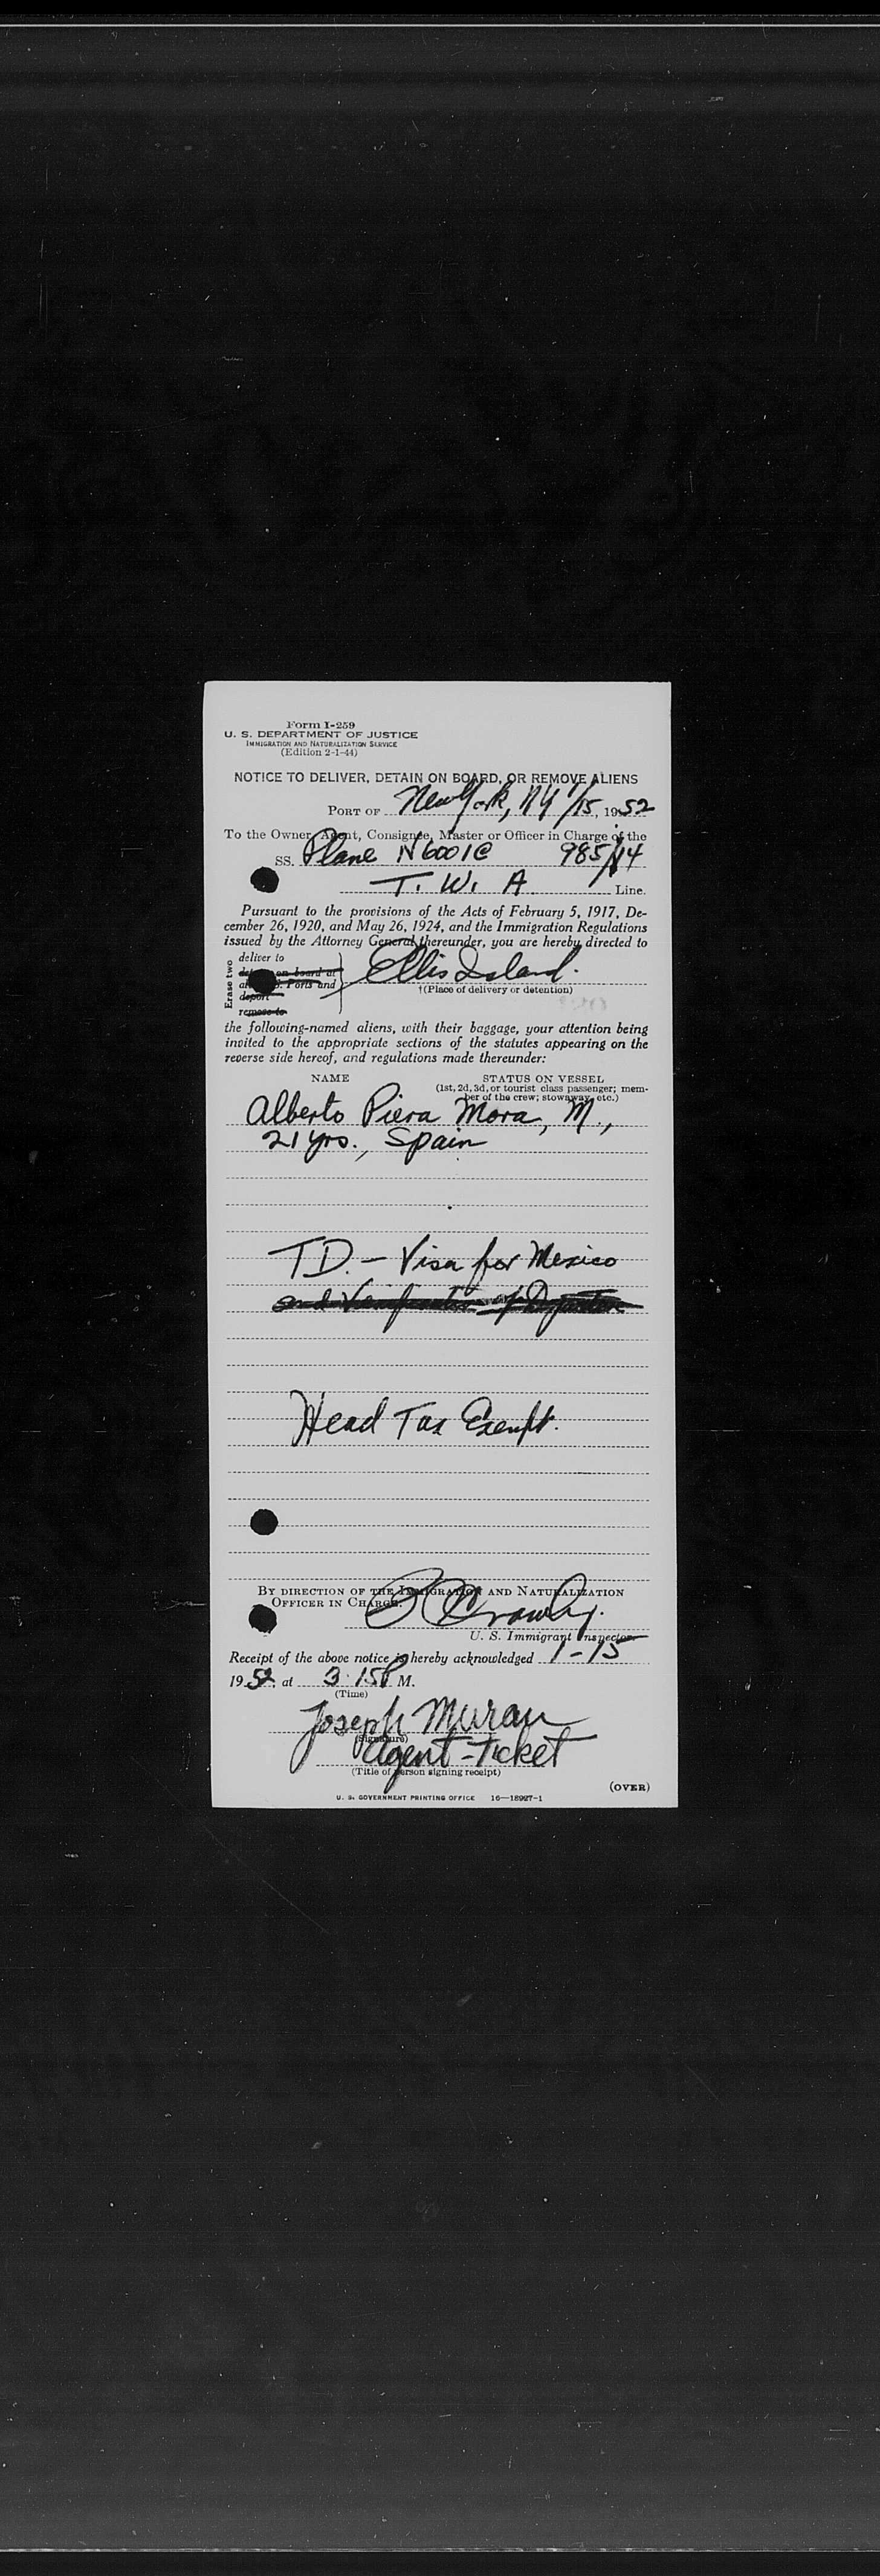 Form I-259
U. S. DEPARTMENT OF JUSTICE
IMMIGRATION AND NATURALIZATION SERVICE
(Edition 2-1-44)
NOTICE TO DELIVER, DETAIN ON BOARD, OR REMOVE ALIENS
PORT OF New York, NY 1/15, 1952
To the Owner, Agent, Consignee, Master or Officer in Charge of the
SS. Plane N6001C 985/14
T. W. A. Line.
Pursuant to the provisions of the Acts of February 5, 1917, De-
cember 26, 1920, and May 26, 1924, and the Immigration Regulations
issued by the Attorney General thereunder, you are hereby directed to
Erase two
deliver to
on board at
Ports and
deport
remove to
Ellis Island.
†(Place of delivery or detention)
the following-named aliens, with their baggage, your attention being
invited to the appropriate sections of the statutes appearing on the
reverse side hereof, and regulations made thereunder:
NAME STATUS ON VESSEL
(1st, 2d, 3d, or tourist class passenger; mem-
ber of the crew; stowaway, etc.)
Alberto Piera Mora, M.,
21 yrs., Spain
T.D. - Visa for Mexico
Head Tax Exempt.
BY DIRECTION OF THE IMMIGRATION AND NATURALIZATION
OFFICER IN CHARGE.
U. S. Immigrant Inspector.
Receipt of the above notice is hereby acknowledged 1-15
1952 at 3:15 P M.
(Time)
Joseph Muran
(Signature)
Agent-Ticket
(Title of person signing receipt)
(OVER)
U. S. GOVERNMENT PRINTING OFFICE 16-18927-1